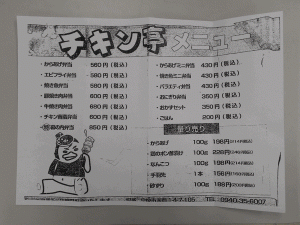 チキン亭 メニュー
・から揚げ弁当 560円(税込)
・エビフライ弁当 580円(税込)
・焼き魚弁当 600円(税込)
・唐揚き肉弁当 600円(税込)
・牛焼き肉弁当 690円(税込)
・チキン南蛮弁当 600円(税込)
弁当 850円(税込)
・から揚げミニ弁当 430円(税込)
・焼き魚ミニ弁当 430円(税込)
・バラエティ弁当 430円(税込)
・おにぎり弁当 350円(税込)
・おかずセット 350円(税込)
・ごはん 200円(税込)
量り売り
・から揚げ 100g 198円
100g 228円
・なんこつ 100g 198円
・手羽先 1本 156円
・砂ずり 100g 188円
0940-35-6007